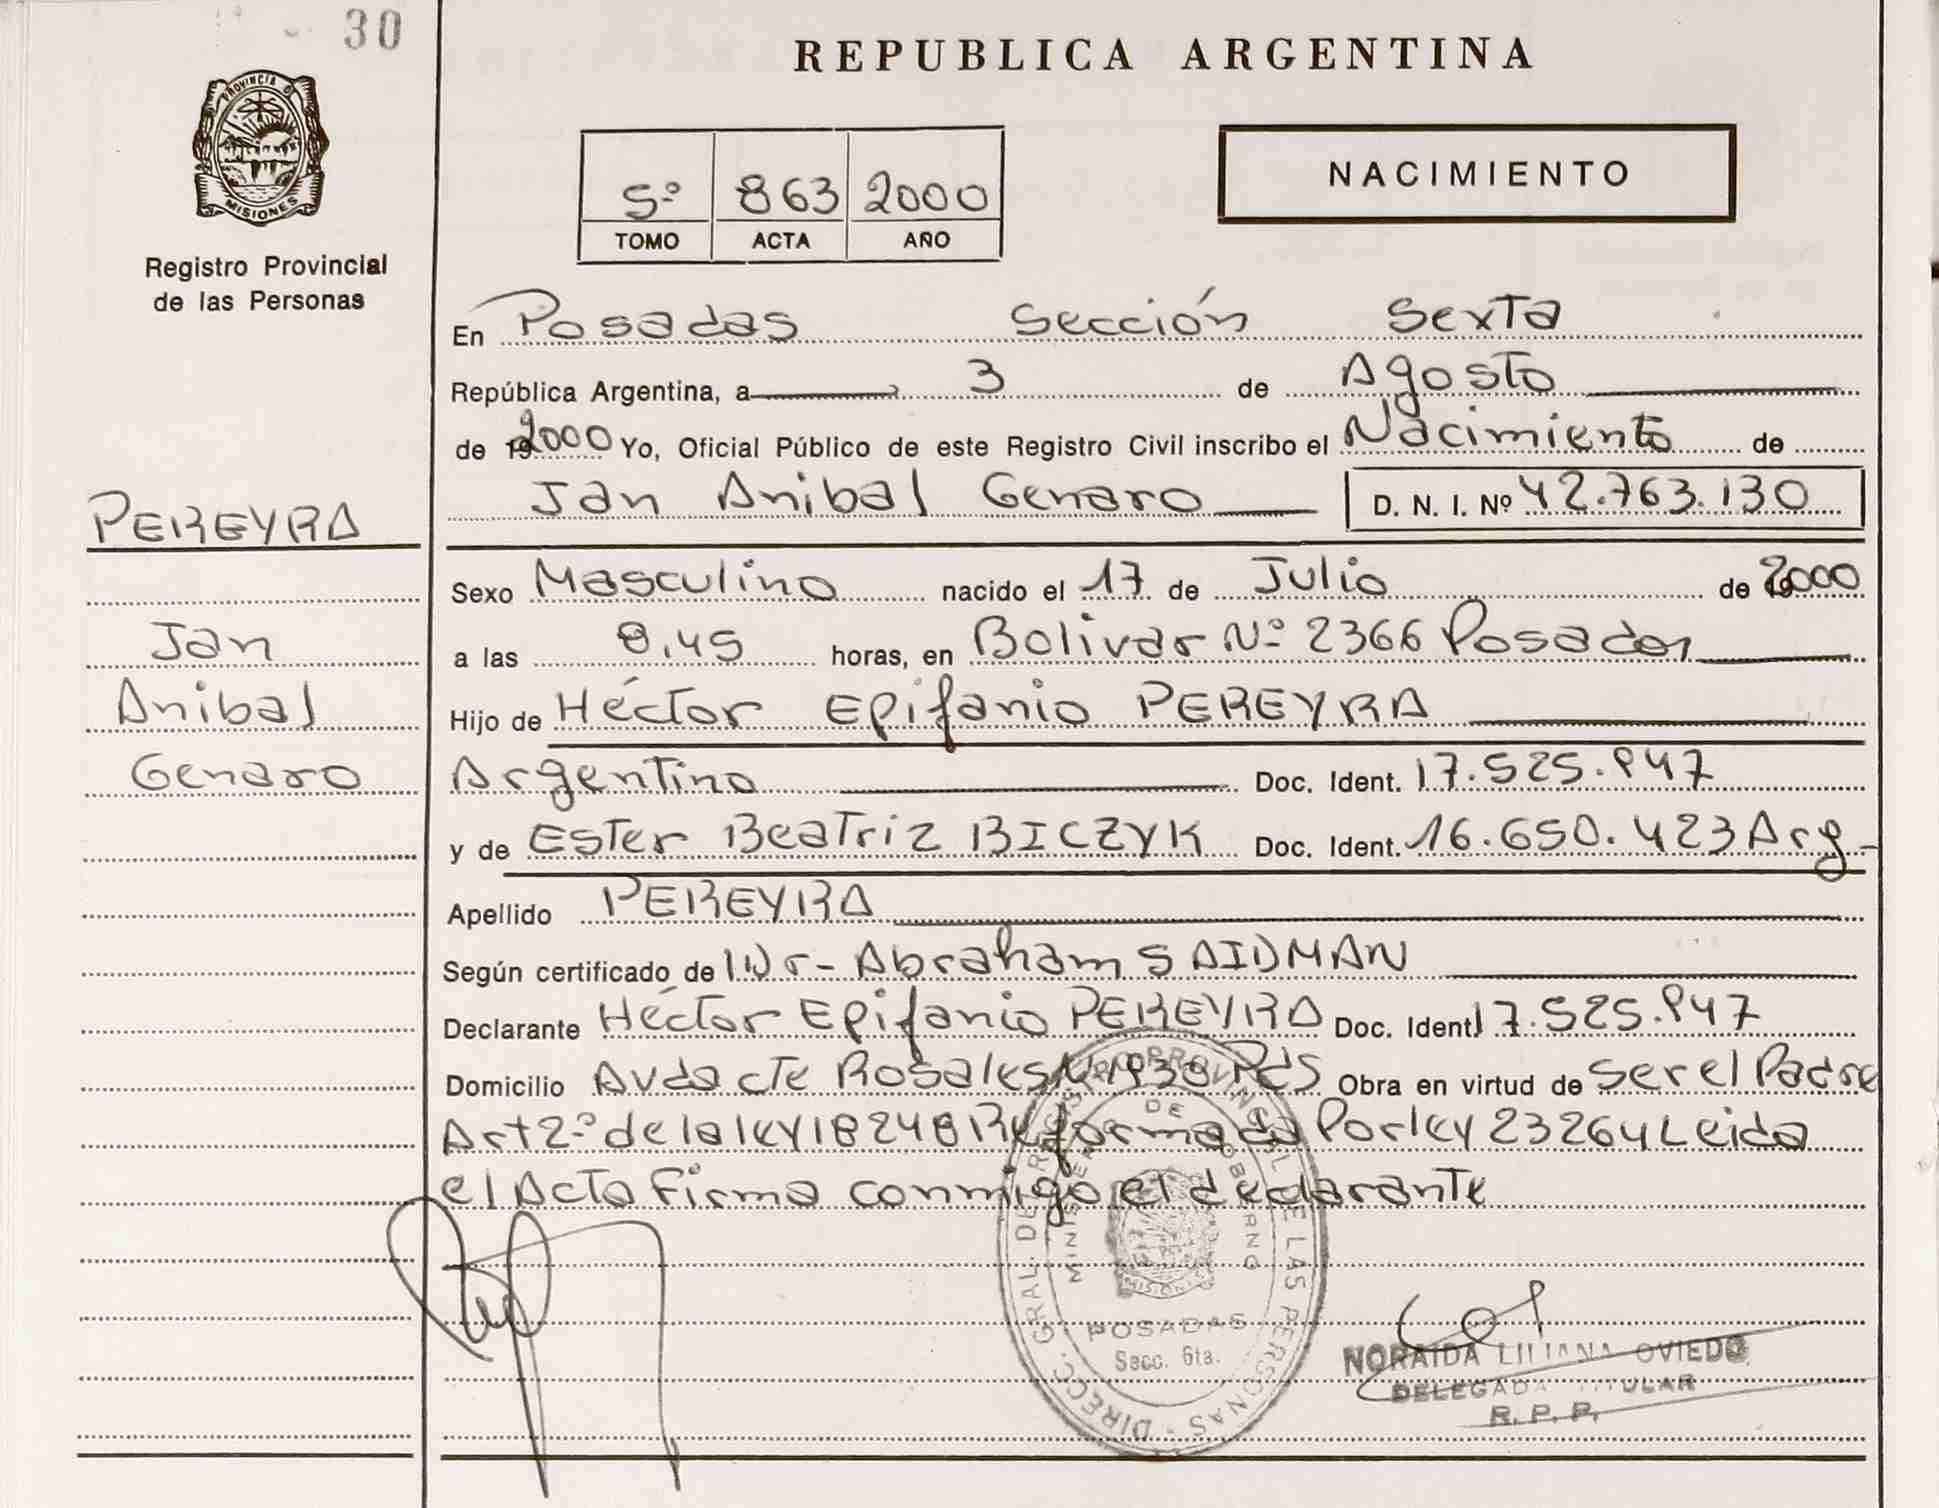 30
REPUBLICA ARGENTINA
PROVINCIA D
MISIONES
Registro Provincial
de las Personas
5º 863 2000
TOMO ACTA AÑO
NACIMIENTO
En Posadas Sección Sexta
República Argentina, a 3 de Agosto
de 2000 Yo, Oficial Público de este Registro Civil inscribo el Nacimiento de
Jan Anibal Genaro D. N. I. Nº 42.763.130
PEREYRA
Jan
Anibal
Genaro
Sexo Masculino nacido el 17 de Julio de 2000
a las 8,45 horas, en Bolivar Nº 2366 Posadas
Hijo de Héctor Epifanio PEREYRA
Argentino Doc. Ident. 17.525.947
y de Ester Beatriz BICZYK Doc. Ident. 16.650.423 Arg-
Apellido PEREYRA
Según certificado de Dr- Abraham SAIDMAN
Declarante Héctor Epifanio PEREYRA Doc. Ident 17.525.947
Domicilio Avda cte Rosales Nº 1938 Pds Obra en virtud de Ser el Padre
Art 2º de la ley 18248 Reformada Por ley 23264 Leida
el Acta Firma conmigo el declarante
DIRECC. GRAL. DE REGISTRO PROVINCIAL DE LAS PERSONAS
MINISTERIO DE GOBIERNO
MISIONES
POSADAS
Secc. 6ta.
NORAIDA LILIANA OVIEDO
DELEGADA TITULAR
R. P. P.